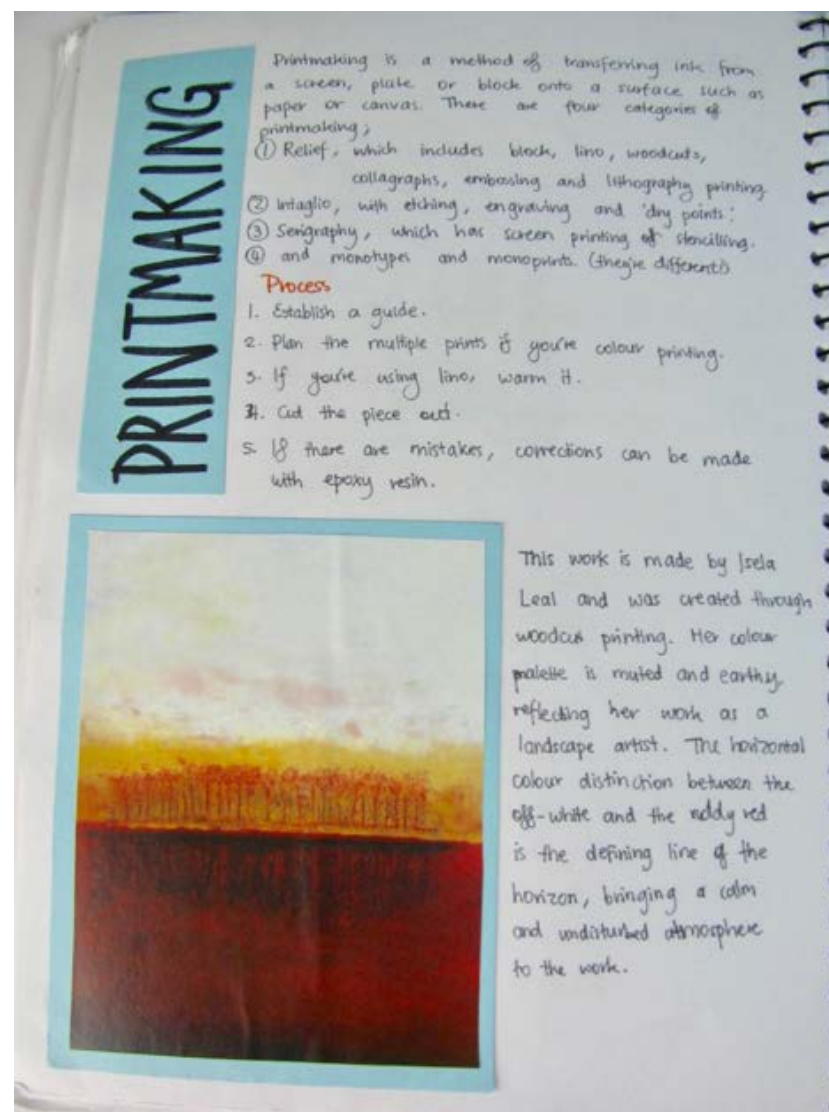 PRINTMAKING
Printmaking is a method of transferring ink from
a screen, plate or block onto a surface such as
paper or canvas. There are four categories of
printmaking;
① Relief, which includes block, lino, woodcuts,
collagraphs, embossing and lithography printing
② Intaglio, with etching, engraving and 'dry points'.
③ Serigraphy, which has screen printing of stencilling.
④ and monotypes and monoprints. (they're different)
Process
1. Establish a guide.
2. Plan the multiple prints if you're colour printing.
3. If you're using lino, warm it.
4. Cut the piece out.
5. If there are mistakes, corrections can be made
with epoxy resin.
This work is made by Isela
Leal and was created through
woodcut printing. Her colour
palette is muted and earthy
reflecting her work as a
landscape artist. The horizontal
colour distinction between the
off-white and the ruddy red
is the defining line of the
horizon, bringing a calm
and undisturbed atmosphere
to the work.